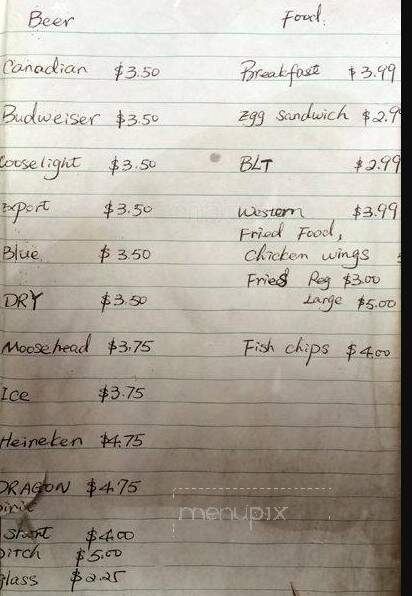 Beer
Canadian $3.50
Budweiser $3.50
ooselight $3.50
Export $3.50
Blue $3.50
DRY $3.50
Moosehead $3.75
Ice $3.75
Heineken $4.75
DRAGON $4.75
$4.00
pitch $5.00
glass $2.25
Food:
Breakfast $3.99
Egg sandwich $2.9
BLT $2.99
Western $3.99
Fried Food,
Chicken wings
Fries Reg $3.00
Large $5.00
Fish chips $4.00
menupix